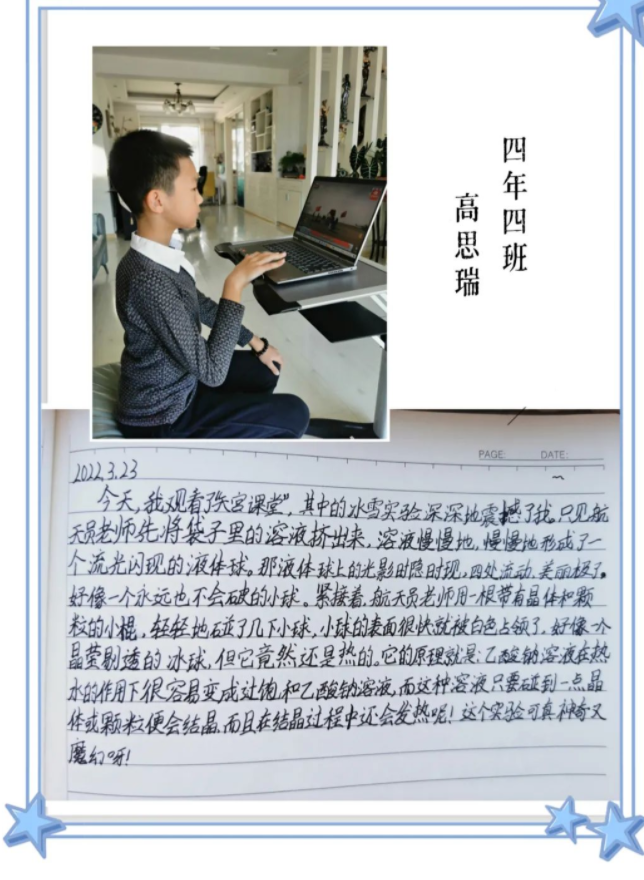 四年四班
高思瑞
PAGE: DATE:
2022.3.23
今天,我观看了“天宫课堂”,其中的冰雪实验深深地震撼了我。只见航
天员老师先将袋子里的溶液挤出来,溶液慢慢地,慢慢地形成了一
个流光闪现的液体球。那液体球上的光影时隐时现,四处流动,美丽极了。
好像一个永远也不会破的小球。紧接着,航天员老师用一根带有晶体和颗
粒的小棍,轻轻地碰了几下小球,小球的表面很快就被白色占领了。好像一个
晶莹剔透的冰球,但它竟然还是热的。它的原理就是:乙酸钠溶液在热
水的作用下很容易变成过饱和乙酸钠溶液,而这种溶液只要碰到一点晶
体或颗粒便会结晶,而且在结晶过程中还会发热呢!这个实验可真神奇又
魔幻呀!